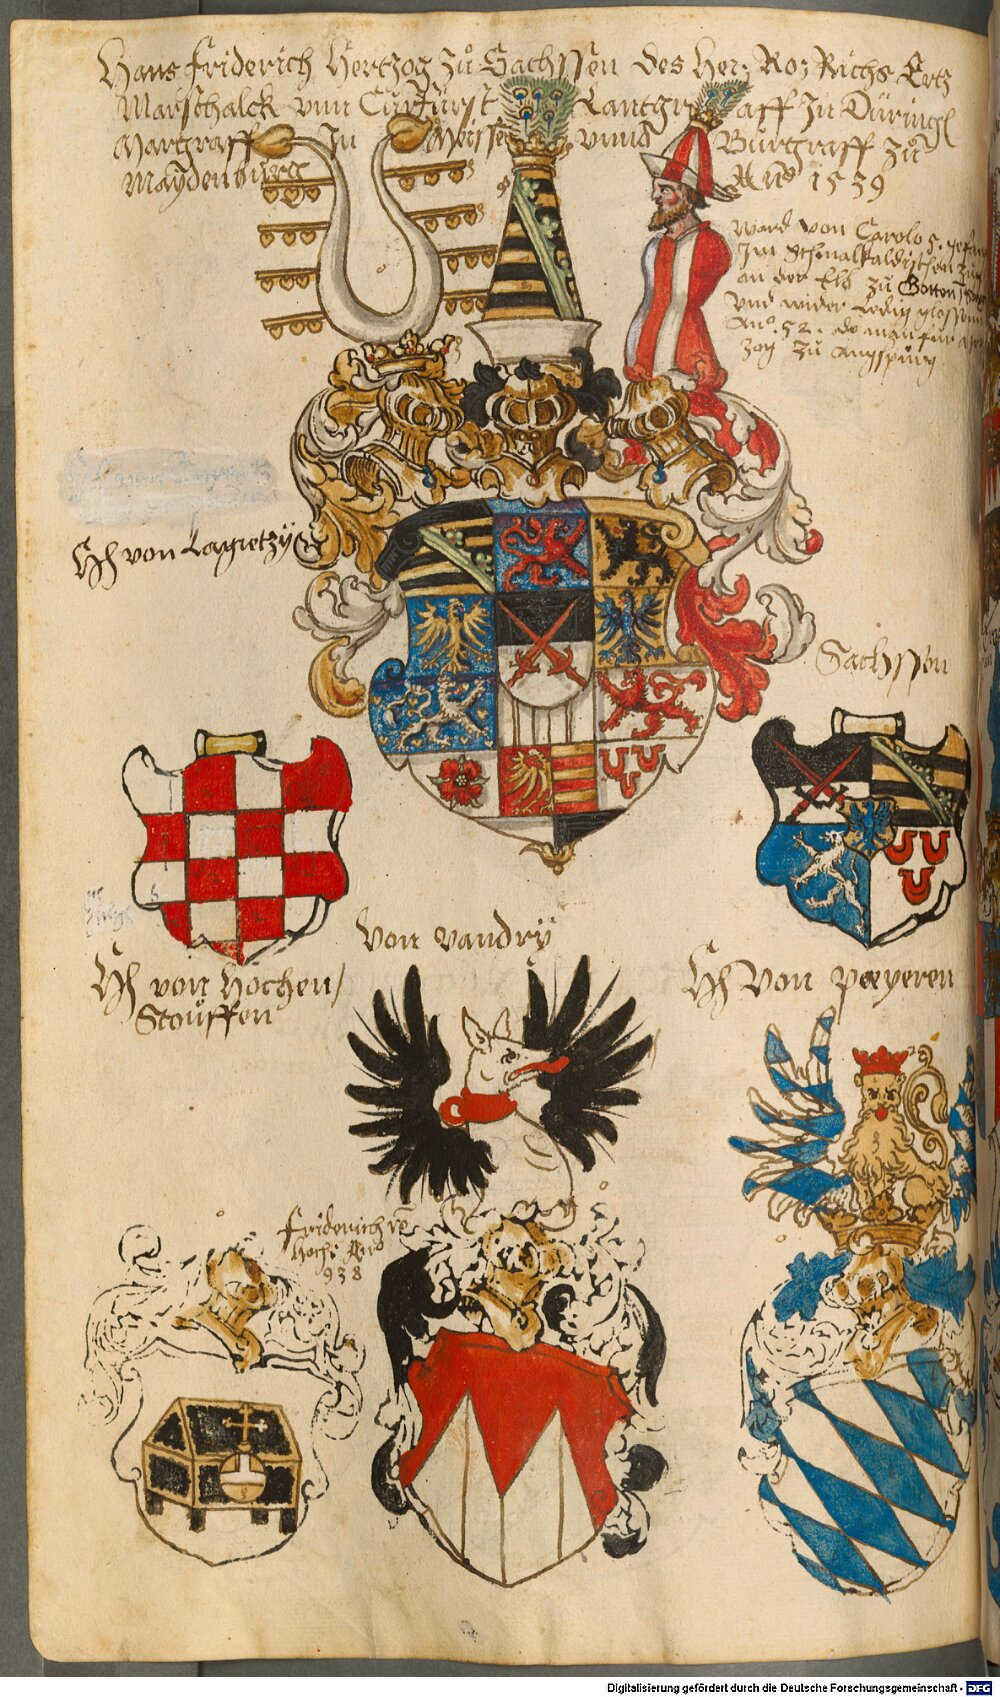 Hans Friderich Hertzog Zů Sachssen des Hey: Ro: Richs Ertz
Marschalck vnn Curfürst Lantgraff In Düringl
Margraff In Meissen vnnd Burgraff Zů
Maydenburg Año 1539
Ward von Carolo 5. gefan
Im Schmalkaldischen Zug
an der Elb zů
vnd wider Ledig glossenn
Año. 52. do man für
zog zů Augspurg
Hh von Lagietzÿ
Sachssen
Hh von Hochen/
Stouffen
Von Vandrÿ
Hh Von payeren
Friderich vo
Hochs Año
938
Digitalisierung gefördert durch die Deutsche Forschungsgemeinschaft - DFG